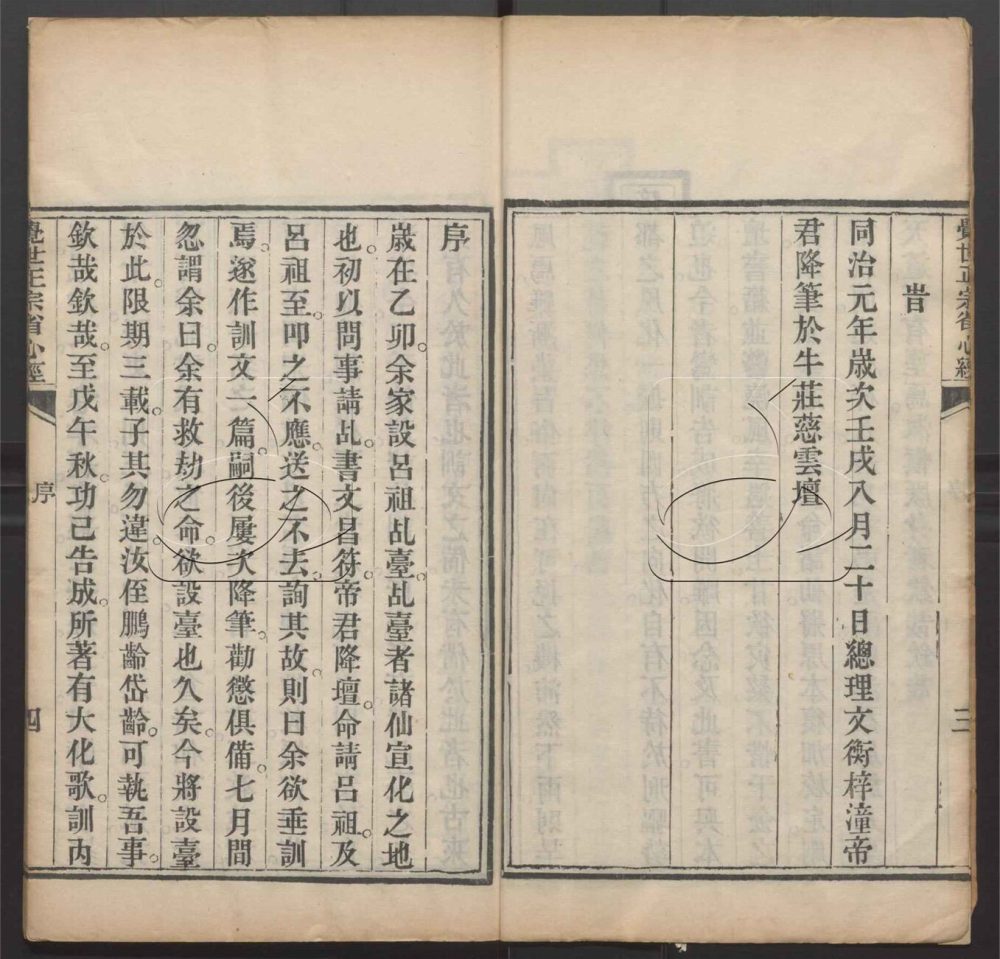 覺世正宗省心經
三
旹
同治元年歲次壬戌八月二十日總理文衡梓潼帝
君降筆於牛莊慈雲壇
序
歲在乙卯。余家設呂祖乩臺。乩臺者。諸仙宣化之地
也。初以問事請乩。書文昌符。帝君降壇。命請呂祖。及
呂祖至。叩之不應。送之不去。詢其故。則曰余欲垂訓
焉。遂作訓文一篇。嗣後屢次降筆。勸懲俱備。七月間
忽謂余曰。余有救劫之命。欲設臺也久矣。今將設臺
於此。限期三載。子其勿違。汝侄鵬齡岱齡。可執吾事。
欽哉欽哉。至戊午秋。功已告成。所著有大化歌。訓丙
覺世正宗省心經
序
四